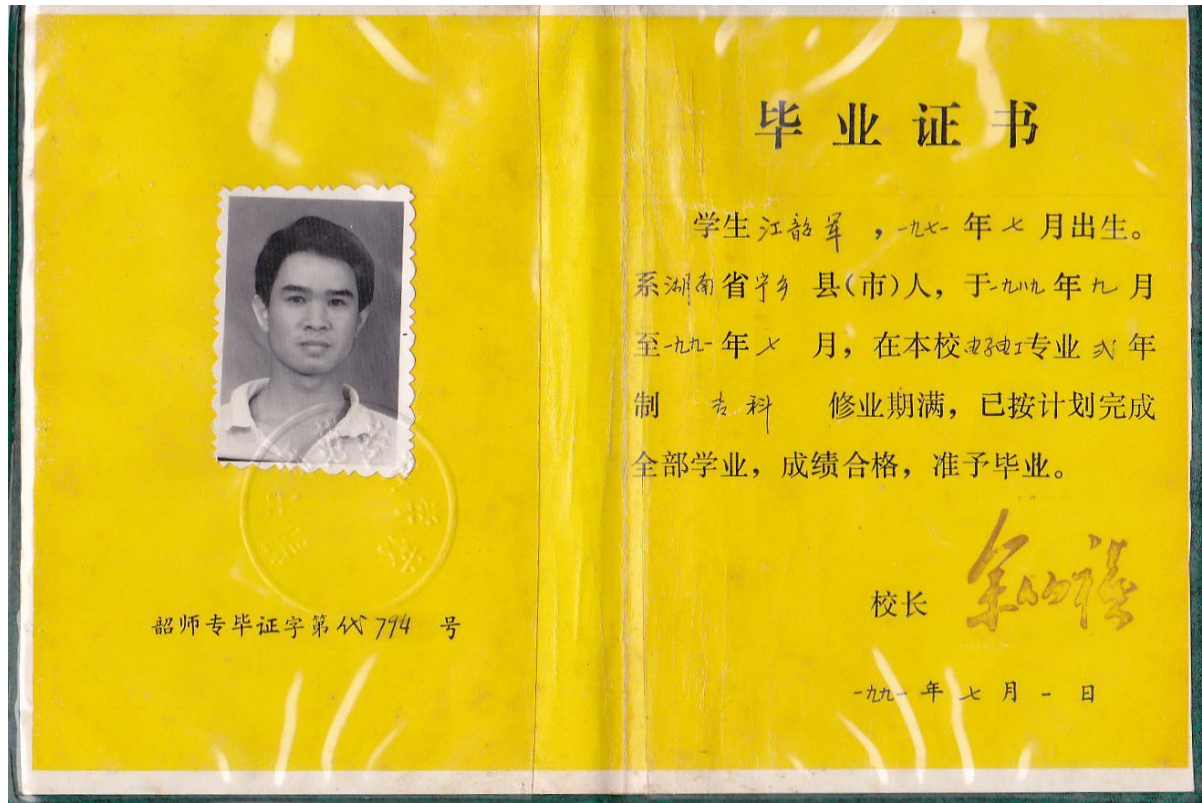 韶师专毕证字第代794 号
毕业证书
学生江韶军，一九七一年七月出生。
系湖南省宁乡县(市)人，于一九八九年九月
至一九九一年七月，在本校电子电工专业弍年
制 专科 修业期满，已按计划完成
全部学业，成绩合格，准予毕业。
校长
一九九一年七月一日